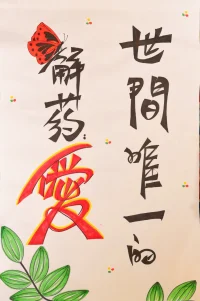 世間唯一的
解药
愛